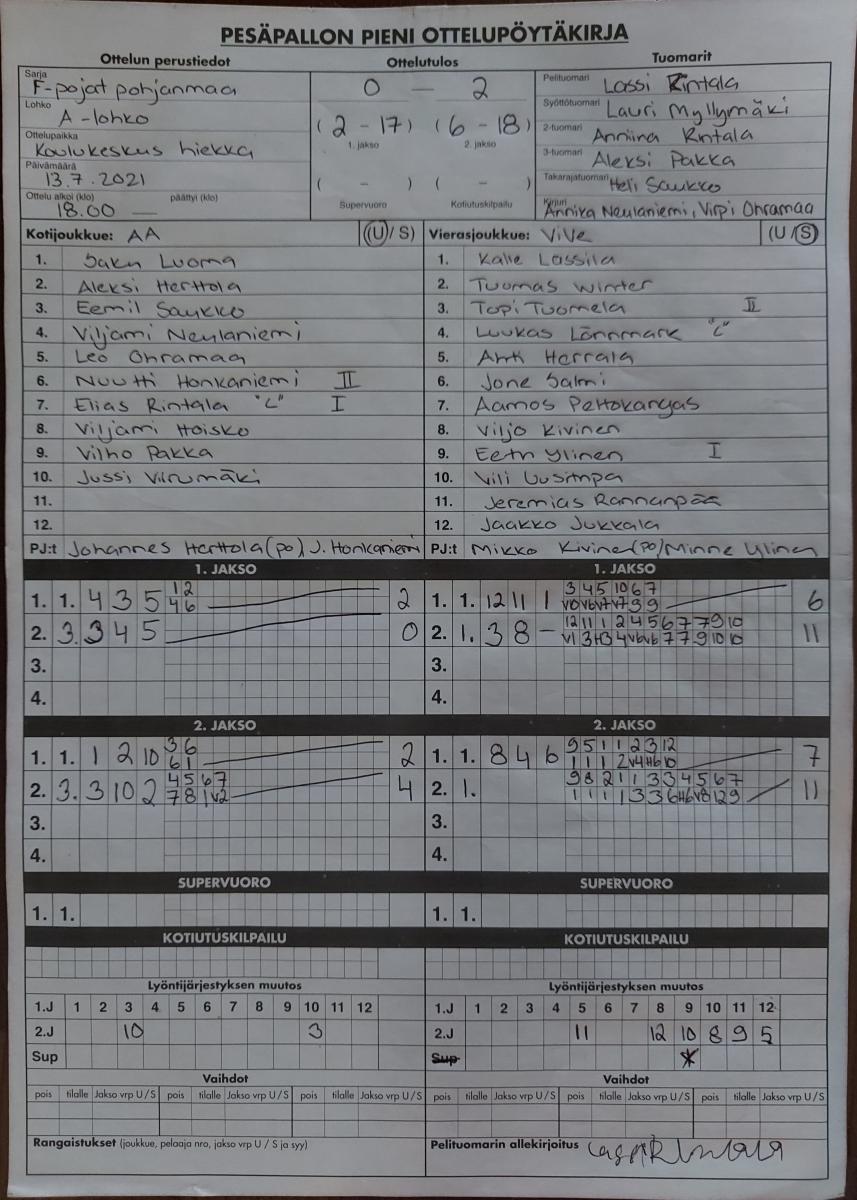 PESÄPALLON PIENI OTTELUPÖYTÄKIRJA
Ottelun perustiedot Ottelutulos Tuomarit
Sarja F-pojat pohjanmaa
Lohko A-lohko
Ottelupaikka Koulukeskus hiekka
Päivämäärä 13.7.2021
Ottelu alkoi (klo) 18.00 — päättyi (klo)
0 — 2
(2 - 17) (6 - 18)
1. jakso 2. jakso
( - ) ( - )
Supervuoro Kotiutuskilpailu
Pelituomari Lassi Rintala
Syöttötuomari Lauri Myllymäki
2-tuomari Anniina Rintala
3-tuomari Aleksi Pakka
Takarajatuomari Heli Saukko
Kirjuri Annika Neulaniemi, Virpi Ohramaa
Kotijoukkue: AA (U / S)
1. Saku Luoma
2. Aleksi Herttola
3. Eemil Saukko
4. Viljami Neulaniemi
5. Leo Ohramaa
6. Nuutti Honkaniemi II
7. Elias Rintala "C" I
8. Viljami Hoisko
9. Vilho Pakka
10. Jussi Virumäki
11.
12.
PJ:t Johannes Herttola (po) J. Honkaniemi
Vierasjoukkue: ViVe (U / S)
1. Kalle Lassila
2. Tuomas Winter
3. Topi Tuomela II
4. Luukas Lännmark "C"
5. Antti Herrala
6. Jone Salmi
7. Aamos Peltokangas
8. Viljo Kivinen
9. Eetu Ylinen I
10. Vili Uusitupa
11. Jeremias Rannanpää
12. Jaakko Jukkala
PJ:t Mikko Kivinen (po) / Minne Ylinen
1. JAKSO
1. 1. 4 3 5 1 2 2
4 6
2. 3. 3 4 5 0
3.
4.
1. JAKSO
1. 1. 12 11 1 3 4 5 10 6 7 6
2. 1. 3 8 - 12 11 1 2 4 5 6 7 7 9 10 11
3.
4.
2. JAKSO
1. 1. 1 2 10 3 6 2
6 1
2. 3. 3 10 2 4 5 6 7 4
7 8 1 v2
3.
4.
2. JAKSO
1. 1. 8 4 6 9 5 1 1 2 3 12 7
1 1 1 2 v4 H6 10
2. 1. 9 8 2 1 1 3 3 4 5 6 7 11
1 1 1 1 3 3 6 H6 v8 12 9
3.
4.
SUPERVUORO
1. 1.
SUPERVUORO
1. 1.
KOTIUTUSKILPAILU
KOTIUTUSKILPAILU
Lyöntijärjestyksen muutos
1.J 1 2 3 4 5 6 7 8 9 10 11 12
2.J 10 3
Sup
Lyöntijärjestyksen muutos
1.J 1 2 3 4 5 6 7 8 9 10 11 12
2.J 11 12 10 8 9 5
Sup *
Vaihdot
pois tilalle Jakso vrp U / S pois tilalle Jakso vrp U / S pois tilalle Jakso vrp U / S
Vaihdot
pois tilalle Jakso vrp U / S pois tilalle Jakso vrp U / S pois tilalle Jakso vrp U / S
Rangaistukset (joukkue, pelaaja nro, jakso vrp U / S ja syy)
Pelituomarin allekirjoitus Lassi Rintala